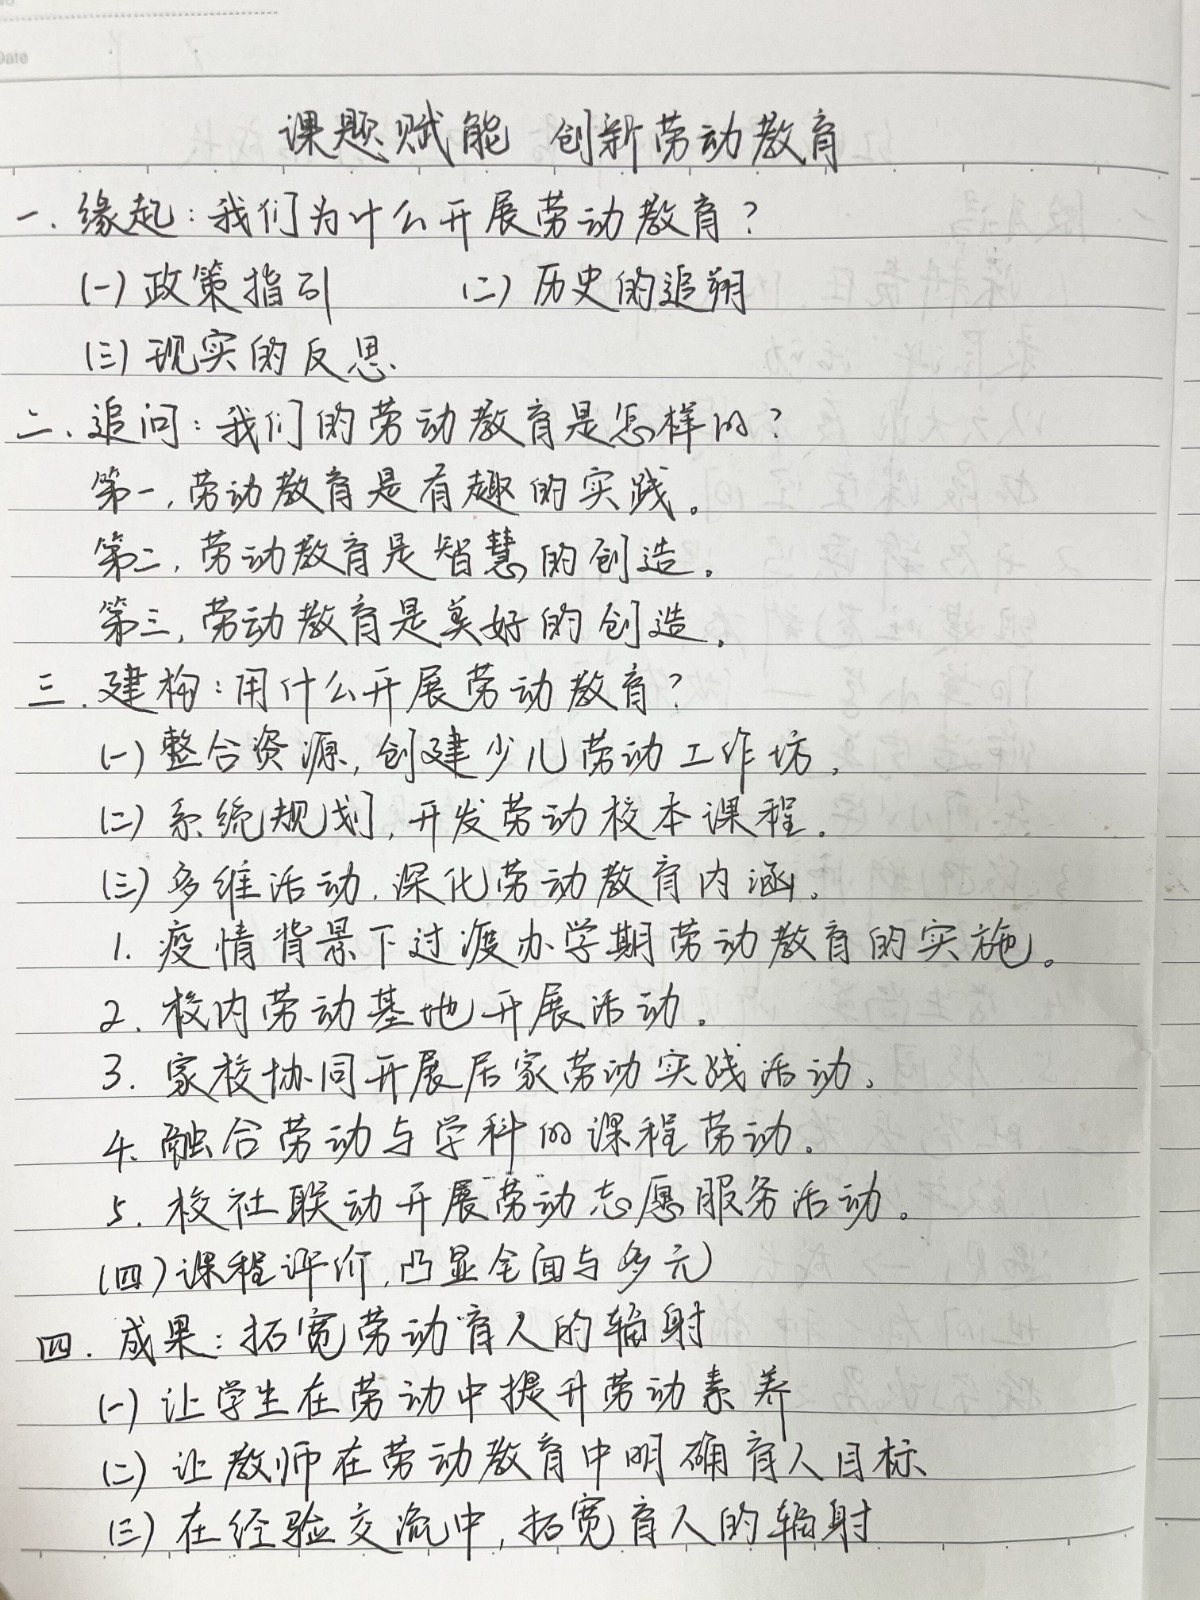 Date
课题赋能 创新劳动教育
一.缘起:我们为什么开展劳动教育?
(一)政策指引 (二)历史的追朔
(三)现实的反思.
二.追问:我们的劳动教育是怎样的?
第一,劳动教育是有趣的实践。
第二,劳动教育是智慧的创造。
第三,劳动教育是美好的创造。
三.建构:用什么开展劳动教育?
(一)整合资源,创建少儿劳动工作坊,
(二)系统规划,开发劳动校本课程.
(三)多维活动.深化劳动教育内涵。
1.疫情背景下过渡办学期劳动教育的实施。
2.校内劳动基地开展活动。
3.家校协同开展居家劳动实践活动,
4.融合劳动与学科的课程劳动。
5.校社联动开展劳动志愿服务活动。
(四)课程评价,凸显全面与多元
四.成果:拓宽劳动育人的辐射
(一)让学生在劳动中提升劳动素养
(二)让教师在劳动教育中明确育人目标
(三)在经验交流中,拓宽育人的辐射